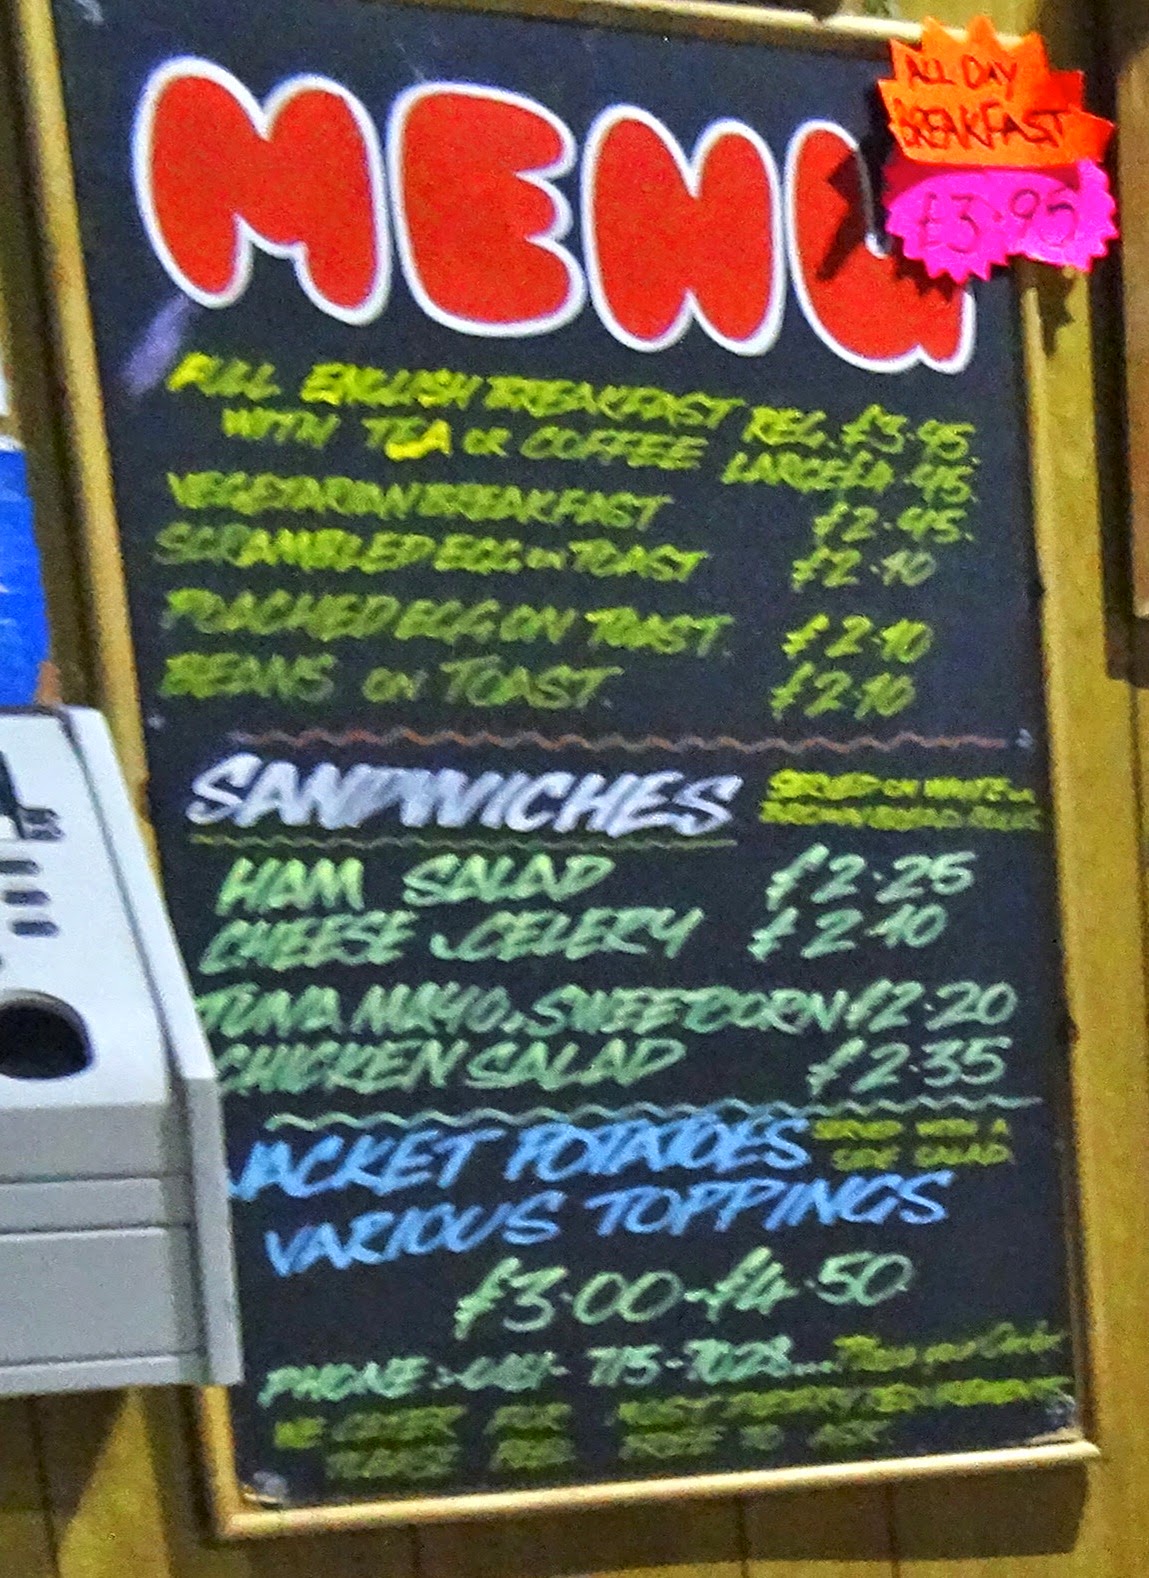 MENU
ALL DAY
BREAKFAST
£3.95
FULL ENGLISH BREAKFAST REG. £3.95.
WITH TEA OR COFFEE LARGE £4.45.
VEGETARIAN BREAKFAST £2.45.
SCRAMBLED EGG ON TOAST £2.10
POACHED EGG ON TOAST. £2.10
BEANS ON TOAST. £2.10
SANDWICHES
SERVED ON WHITE OR
BROWN BREAD ROLLS
HAM SALAD £2.25
CHEESE & CELERY £2.10
TUNA MAYO & SWEETCORN £2.20
CHICKEN SALAD £2.35
JACKET POTATOES
SERVED WITH A
SIDE SALAD.
VARIOUS TOPPINGS
£3.00-£4.50
PHONE:- 0121- 715-7028.... Phone your Order
WE CATER FOR MOST DIETARY REQUIREMENTS
PLEASE FEEL FREE TO ASK